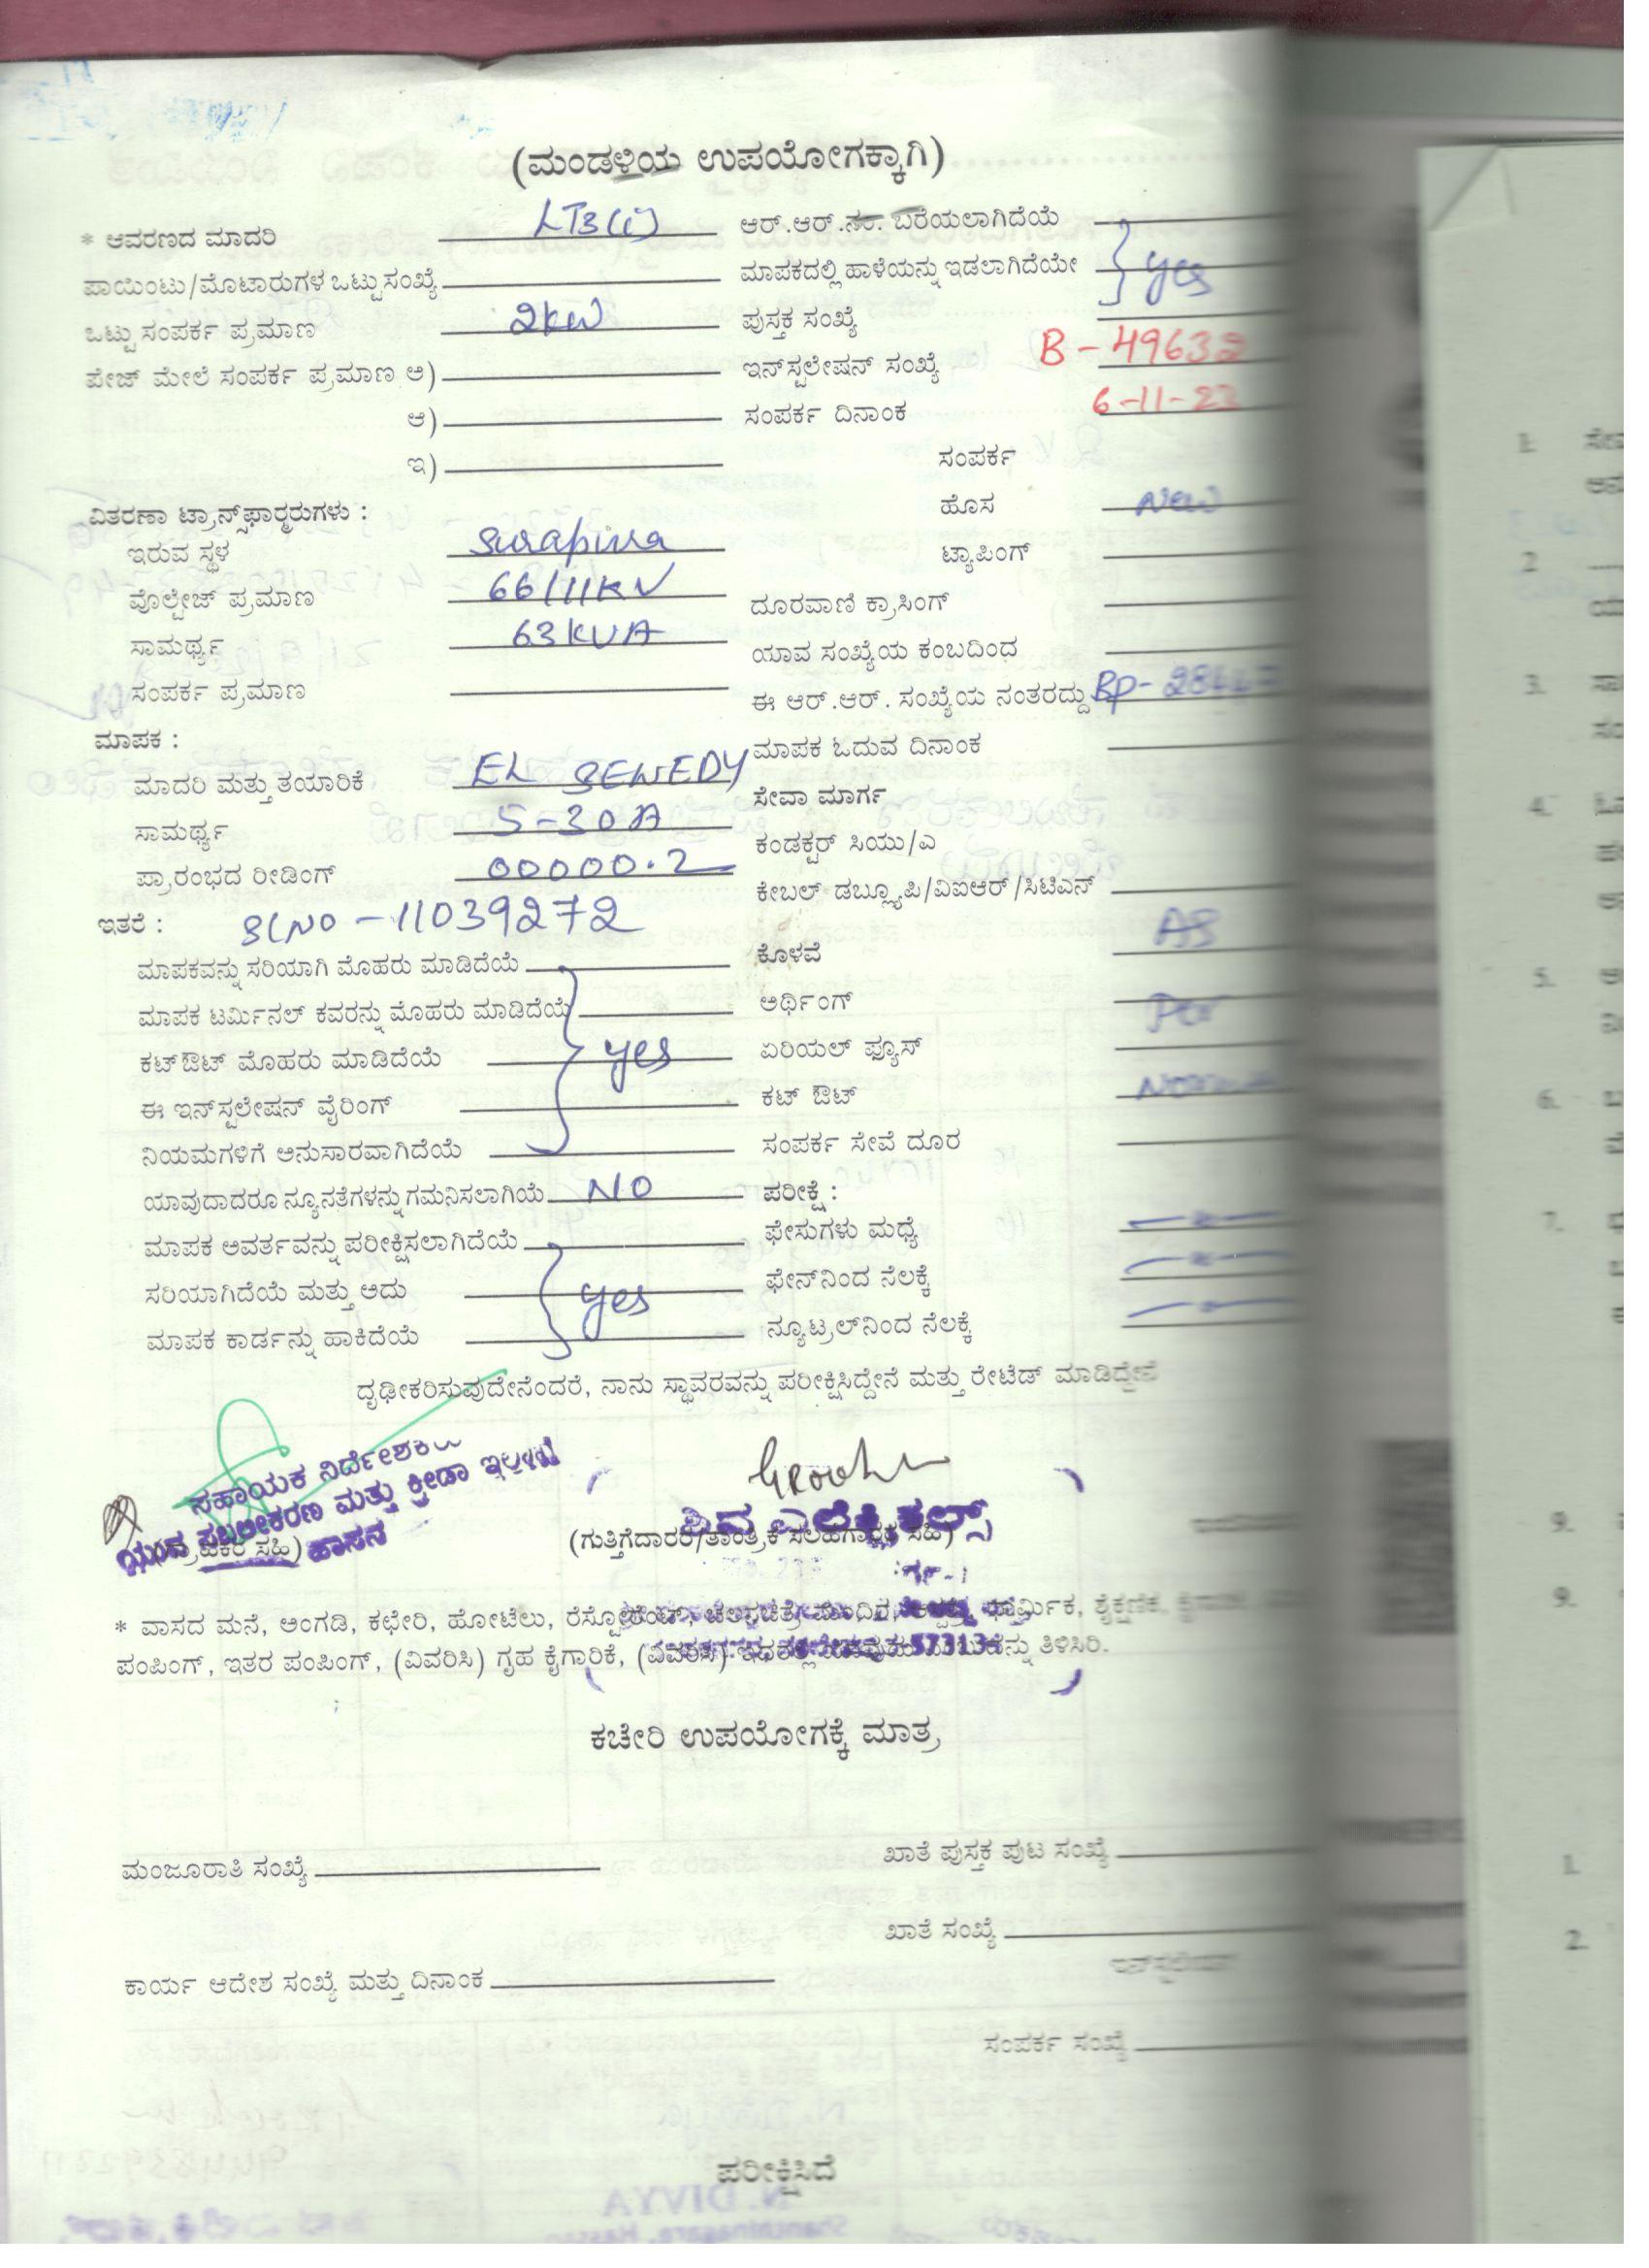 (ಮಂಡಳಿಯ ಉಪಯೋಗಕ್ಕಾಗಿ)
* ಆವರಣದ ಮಾದರಿ LT3(i) ಆರ್.ಆರ್.ನಂ. ಬರೆಯಲಾಗಿದೆಯೆ
ಪಾಯಿಂಟು/ಮೊಟಾರುಗಳ ಒಟ್ಟು ಸಂಖ್ಯೆ ಮಾಪಕದಲ್ಲಿ ಹಾಳೆಯನ್ನು ಇಡಲಾಗಿದೆಯೇ yes
ಒಟ್ಟು ಸಂಪರ್ಕ ಪ್ರಮಾಣ 2kW ಪುಸ್ತಕ ಸಂಖ್ಯೆ
ಪೇಜ್ ಮೇಲೆ ಸಂಪರ್ಕ ಪ್ರಮಾಣ ಅ) ಇನ್‌ಸ್ಟಲೇಷನ್ ಸಂಖ್ಯೆ B-49632
ಆ) ಸಂಪರ್ಕ ದಿನಾಂಕ 6-11-23
ಇ) ಸಂಪರ್ಕ
ವಿತರಣಾ ಟ್ರಾನ್ಸ್‌ಫಾರ್ಮರುಗಳು : ಹೊಸ New
ಇರುವ ಸ್ಥಳ Surapura ಟ್ಯಾಪಿಂಗ್
ವೊಲ್ಟೇಜ್ ಪ್ರಮಾಣ 66/11KV ದೂರವಾಣಿ ಕ್ರಾಸಿಂಗ್
ಸಾಮರ್ಥ್ಯ 63KVA ಯಾವ ಸಂಖ್ಯೆಯ ಕಂಬದಿಂದ
ಸಂಪರ್ಕ ಪ್ರಮಾಣ ಈ ಆರ್.ಆರ್. ಸಂಖ್ಯೆಯ ನಂತರದ್ದು
ಮಾಪಕ : ಮಾಪಕ ಓದುವ ದಿನಾಂಕ
ಮಾದರಿ ಮತ್ತು ತಯಾರಿಕೆ EL SEWEDY ಸೇವಾ ಮಾರ್ಗ
ಸಾಮರ್ಥ್ಯ 5-30A ಕಂಡಕ್ಟರ್ ಸಿಯು/ಎ
ಪ್ರಾರಂಭದ ರೀಡಿಂಗ್ 00000.2 ಕೇಬಲ್ ಡಬ್ಲ್ಯೂಪಿ/ವಿಐಆರ್/ಸಿಟಿಎನ್
ಇತರೆ : SLNO-11039272
ಮಾಪಕವನ್ನು ಸರಿಯಾಗಿ ಮೊಹರು ಮಾಡಿದೆಯೆ ಕೊಳವೆ
ಮಾಪಕ ಟರ್ಮಿನಲ್ ಕವರನ್ನು ಮೊಹರು ಮಾಡಿದೆಯೆ ಅರ್ಥಿಂಗ್
ಕಟ್‌ಔಟ್ ಮೊಹರು ಮಾಡಿದೆಯೆ yes ಏರಿಯಲ್ ಫ್ಯೂಸ್
ಈ ಇನ್‌ಸ್ಟಲೇಷನ್ ವೈರಿಂಗ್ ಕಟ್ ಔಟ್
ನಿಯಮಗಳಿಗೆ ಅನುಸಾರವಾಗಿದೆಯೆ ಸಂಪರ್ಕ ಸೇವೆ ದೂರ
ಯಾವುದಾದರೂ ನ್ಯೂನತೆಗಳನ್ನು ಗಮನಿಸಲಾಗಿಯೆ NO ಪರೀಕ್ಷೆ :
ಮಾಪಕ ಅವರ್ತವನ್ನು ಪರೀಕ್ಷಿಸಲಾಗಿದೆಯೆ ಫೇಸುಗಳು ಮಧ್ಯೆ
ಸರಿಯಾಗಿದೆಯೆ ಮತ್ತು ಅದು yes ಫೇನ್‌ನಿಂದ ನೆಲಕ್ಕೆ
ಮಾಪಕ ಕಾರ್ಡನ್ನು ಹಾಕಿದೆಯೆ ನ್ಯೂಟ್ರಲ್‌ನಿಂದ ನೆಲಕ್ಕೆ
ದೃಢೀಕರಿಸುವುದೇನೆಂದರೆ, ನಾನು ಸ್ಥಾವರವನ್ನು ಪರೀಕ್ಷಿಸಿದ್ದೇನೆ ಮತ್ತು ರೇಟೆಡ್ ಮಾಡಿದ್ದೇನೆ
ಸಹಾಯಕ ನಿರ್ದೇಶಕರು
ಯುವ ಸಬಲೀಕರಣ ಮತ್ತು ಕ್ರೀಡಾ ಇಲಾಖೆ
ಹಾಸನ
ಶಿವ ಎಲೆಕ್ಟ್ರಿಕಲ್ಸ್
(ಗುತ್ತಿಗೆದಾರರ/ತಾಂತ್ರಿಕ ಸಲಹಗಾರರ ಸಹಿ)
* ವಾಸದ ಮನೆ, ಅಂಗಡಿ, ಕಛೇರಿ, ಹೋಟೆಲು, ರೆಸ್ಟೋರೆಂಟ್, ಧಾರ್ಮಿಕ, ಶೈಕ್ಷಣಿಕ,
ಪಂಪಿಂಗ್, ಇತರ ಪಂಪಿಂಗ್, (ವಿವರಿಸಿ) ಗೃಹ ಕೈಗಾರಿಕೆ, (ವಿವರಿಸಿ) ತಿಳಿಸಿರಿ.
ಕಚೇರಿ ಉಪಯೋಗಕ್ಕೆ ಮಾತ್ರ
ಮಂಜೂರಾತಿ ಸಂಖ್ಯೆ ಖಾತೆ ಪುಸ್ತಕ ಪುಟ ಸಂಖ್ಯೆ
ಖಾತೆ ಸಂಖ್ಯೆ
ಕಾರ್ಯ ಆದೇಶ ಸಂಖ್ಯೆ ಮತ್ತು ದಿನಾಂಕ
ಸಂಪರ್ಕ ಸಂಖ್ಯೆ
ಪರೀಕ್ಷಿಸಿದೆ